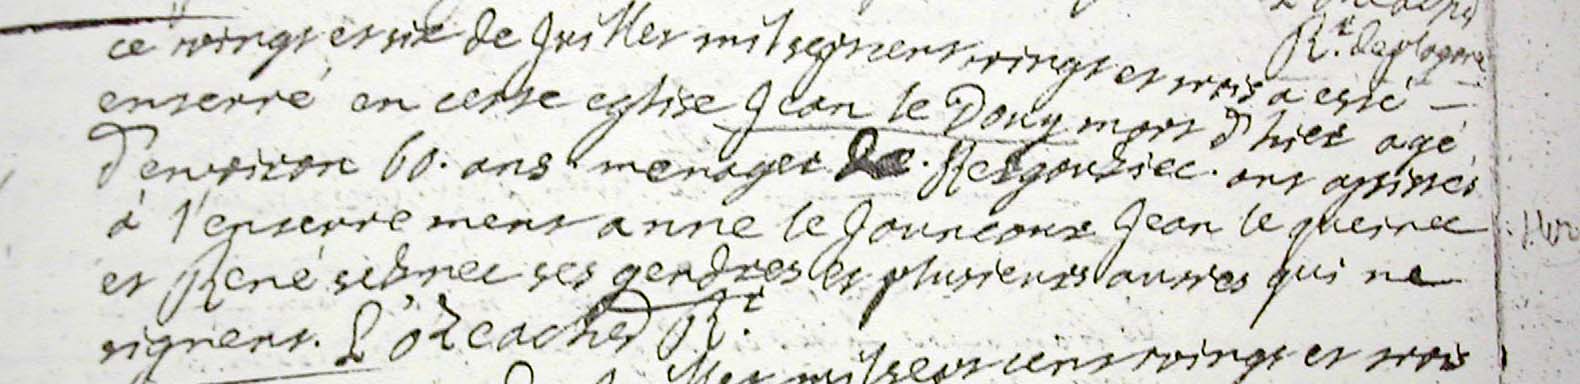 R.t de plogone
ce vingt et six de Juillet mil sept cent vingt et trois a esté
enterré en cette eglise Jean le Douy mort d'hier agé
d'environ 60. ans menager de Kergouziec. ont assistés
à l'enterrement anne le Jouncour Jean le queinec
et René sebrec ses gendres et plusieurs autres qui ne
signent. R.t
mil sept cent vingt et trois